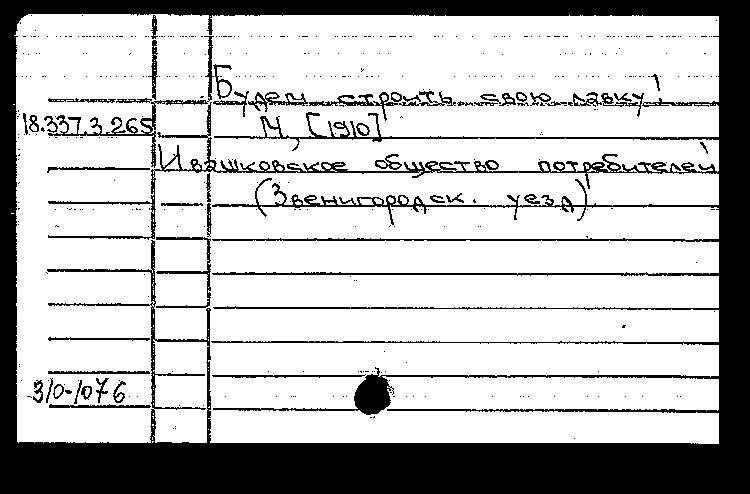 Будем строить свою лавку!
18.337.3.265 М, [1910]
Ивашковское общество потребителей
(Звенигородск. уезд)
3/0-1076